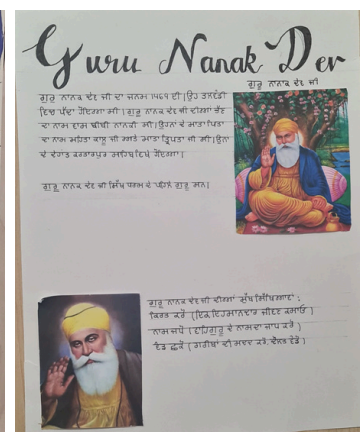 Guru Nanak Dev
ਗੁਰੂ ਨਾਨਕ ਦੇਵ ਜੀ
ਗੁਰੂ ਨਾਨਕ ਦੇਵ ਜੀ ਦਾ ਜਨਮ 1469 ਈ। ਉਹ ਤਲਵੰਡੀ
ਵਿਚ ਪੈਦਾ ਹੋਇਆ ਸੀ। ਗੁਰੂ ਨਾਨਕ ਦੇਵ ਜੀ ਦੀਆਂ ਭੈਣ
ਦਾ ਨਾਮ ਬੀਬੀ ਨਾਨਕੀ ਸੀ। ਉਹਨਾਂ ਦੇ ਮਾਤਾ ਪਿਤਾ
ਦਾ ਨਾਮ ਮਹਿਤਾ ਕਾਲੂ ਜੀ ਅਤੇ ਮਾਤਾ ਤ੍ਰਿਪਤਾ ਜੀ ਸੀ।
ਦੇ ਦੇਹਾਂਤ ਕਰਤਾਰਪੁਰ ਸਾਹਿਬ ਵਿਖੇ ਹੋਇਆ।
ਗੁਰੂ ਨਾਨਕ ਦੇਵ ਜੀ ਸਿੱਖ ਧਰਮ ਦੇ ਪਹਿਲੇ ਗੁਰੂ ਸਨ।
ਗੁਰੂ ਨਾਨਕ ਦੇਵ ਜੀ ਦੀਆਂ ਮੁੱਖ ਸਿੱਖਿਆਵਾਂ :
ਕਿਰਤ ਕਰੋ (ਇਕ ਇਮਾਨਦਾਰ ਜੀਵਣ ਕਮਾਓ)
ਨਾਮ ਜਪੋ (ਵਾਹਿਗੁਰੂ ਦੇ ਨਾਮ ਦਾ ਜਾਪ ਕਰੋ)
ਵੰਡ ਛਕੋ (ਗਰੀਬਾਂ ਦੀ ਮਦਦ ਕਰੋ,